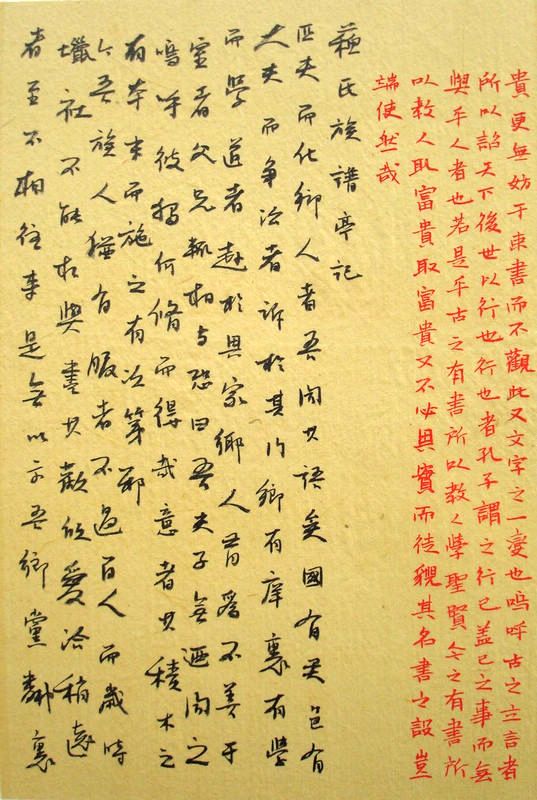 貴更無妨于束書而不觀此又文字之一變也嗚呼古之立言者
所以詔天下後世以行也行也者孔子謂之行己蓋己之事而無
與乎人者也若是乎古之有書所以教人學聖賢今之有書所
以教人取富貴取富貴又不必具實而徒竊其名書之設豈
端使然哉
蘇氏族譜亭記
匹夫而化鄉人者吾聞其語矣國有君邑有
大夫而爭訟者訴於其門鄉有庠裏有學
而學道者赴於其家鄉人有為不善于
室者父兄輒相與恐曰吾夫子無乃聞之
嗚呼彼獨何脩而得哉意者其積木之
有本末而施之有次第耶
今吾族人猶有服者不過百人而歲時
蠟社不能相與盡其歡欣愛洽稍遠
者至不相往來是無以示吾鄉黨鄰裏